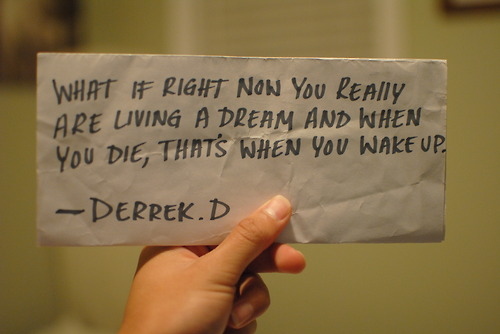 WHAT IF RIGHT NOW YOU REALLY
ARE LIVING A DREAM AND WHEN
YOU DIE, THAT'S WHEN YOU WAKE UP.
— DERREK.D